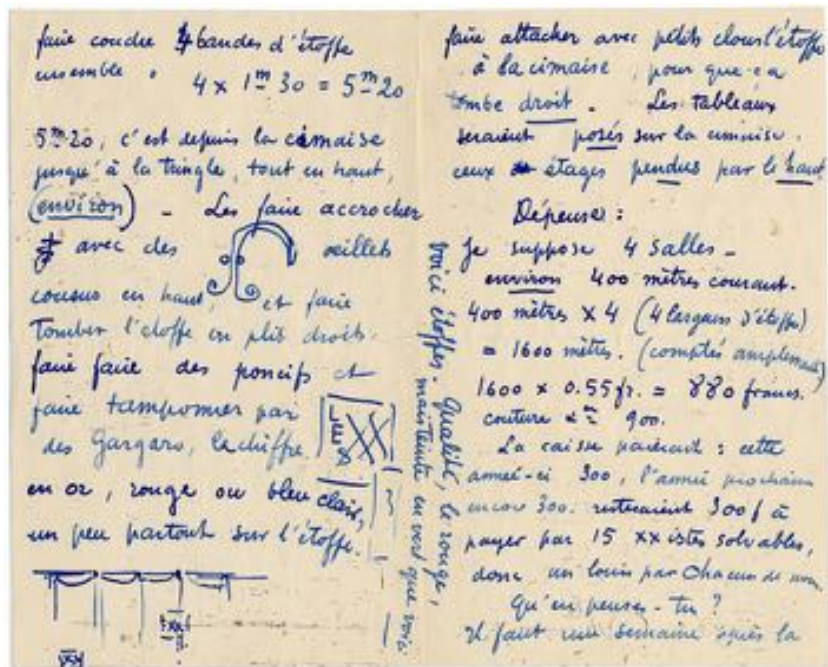 faire coudre 4 bandes d'étoffe
ensemble.
4 x 1m 30 = 5m 20
5m 20, c'est depuis la cimaise
jusqu'à la tringle, tout en haut,
(environ) – Les faire accrocher
avec des œillets
cousus en haut, et faire
tomber l'étoffe en plis droits.
faire faire des poncifs et
faire tamponner par
des Gargaro, le chiffre
en or, rouge ou bleu clair,
un peu partout sur l'étoffe.
XX
XX
voici étoffes. Qualité, le rouge,
mais teinte en vert que voici
faire attacher avec petits clous l'étoffe
à la cimaise, pour que ça
tombe droit. Les tableaux
seraient posés sur la cimaise.
ceux étages pendus par le haut
Dépense :
Je suppose 4 salles –
environ 400 mètres courant.
400 mètres X 4 (4 largeurs d'étoffe)
= 1600 mètres. (comptés amplement)
1600 x 0.55 fr. = 880 francs.
couture 900.
La caisse paierait : cette
année-ci 300, l'année prochaine
encore 300. resteraient 300 f à
payer par 15 XXistes solvables,
donc un louis par chacun de nous
Qu'en penses-tu ?
Il faut une semaine après la